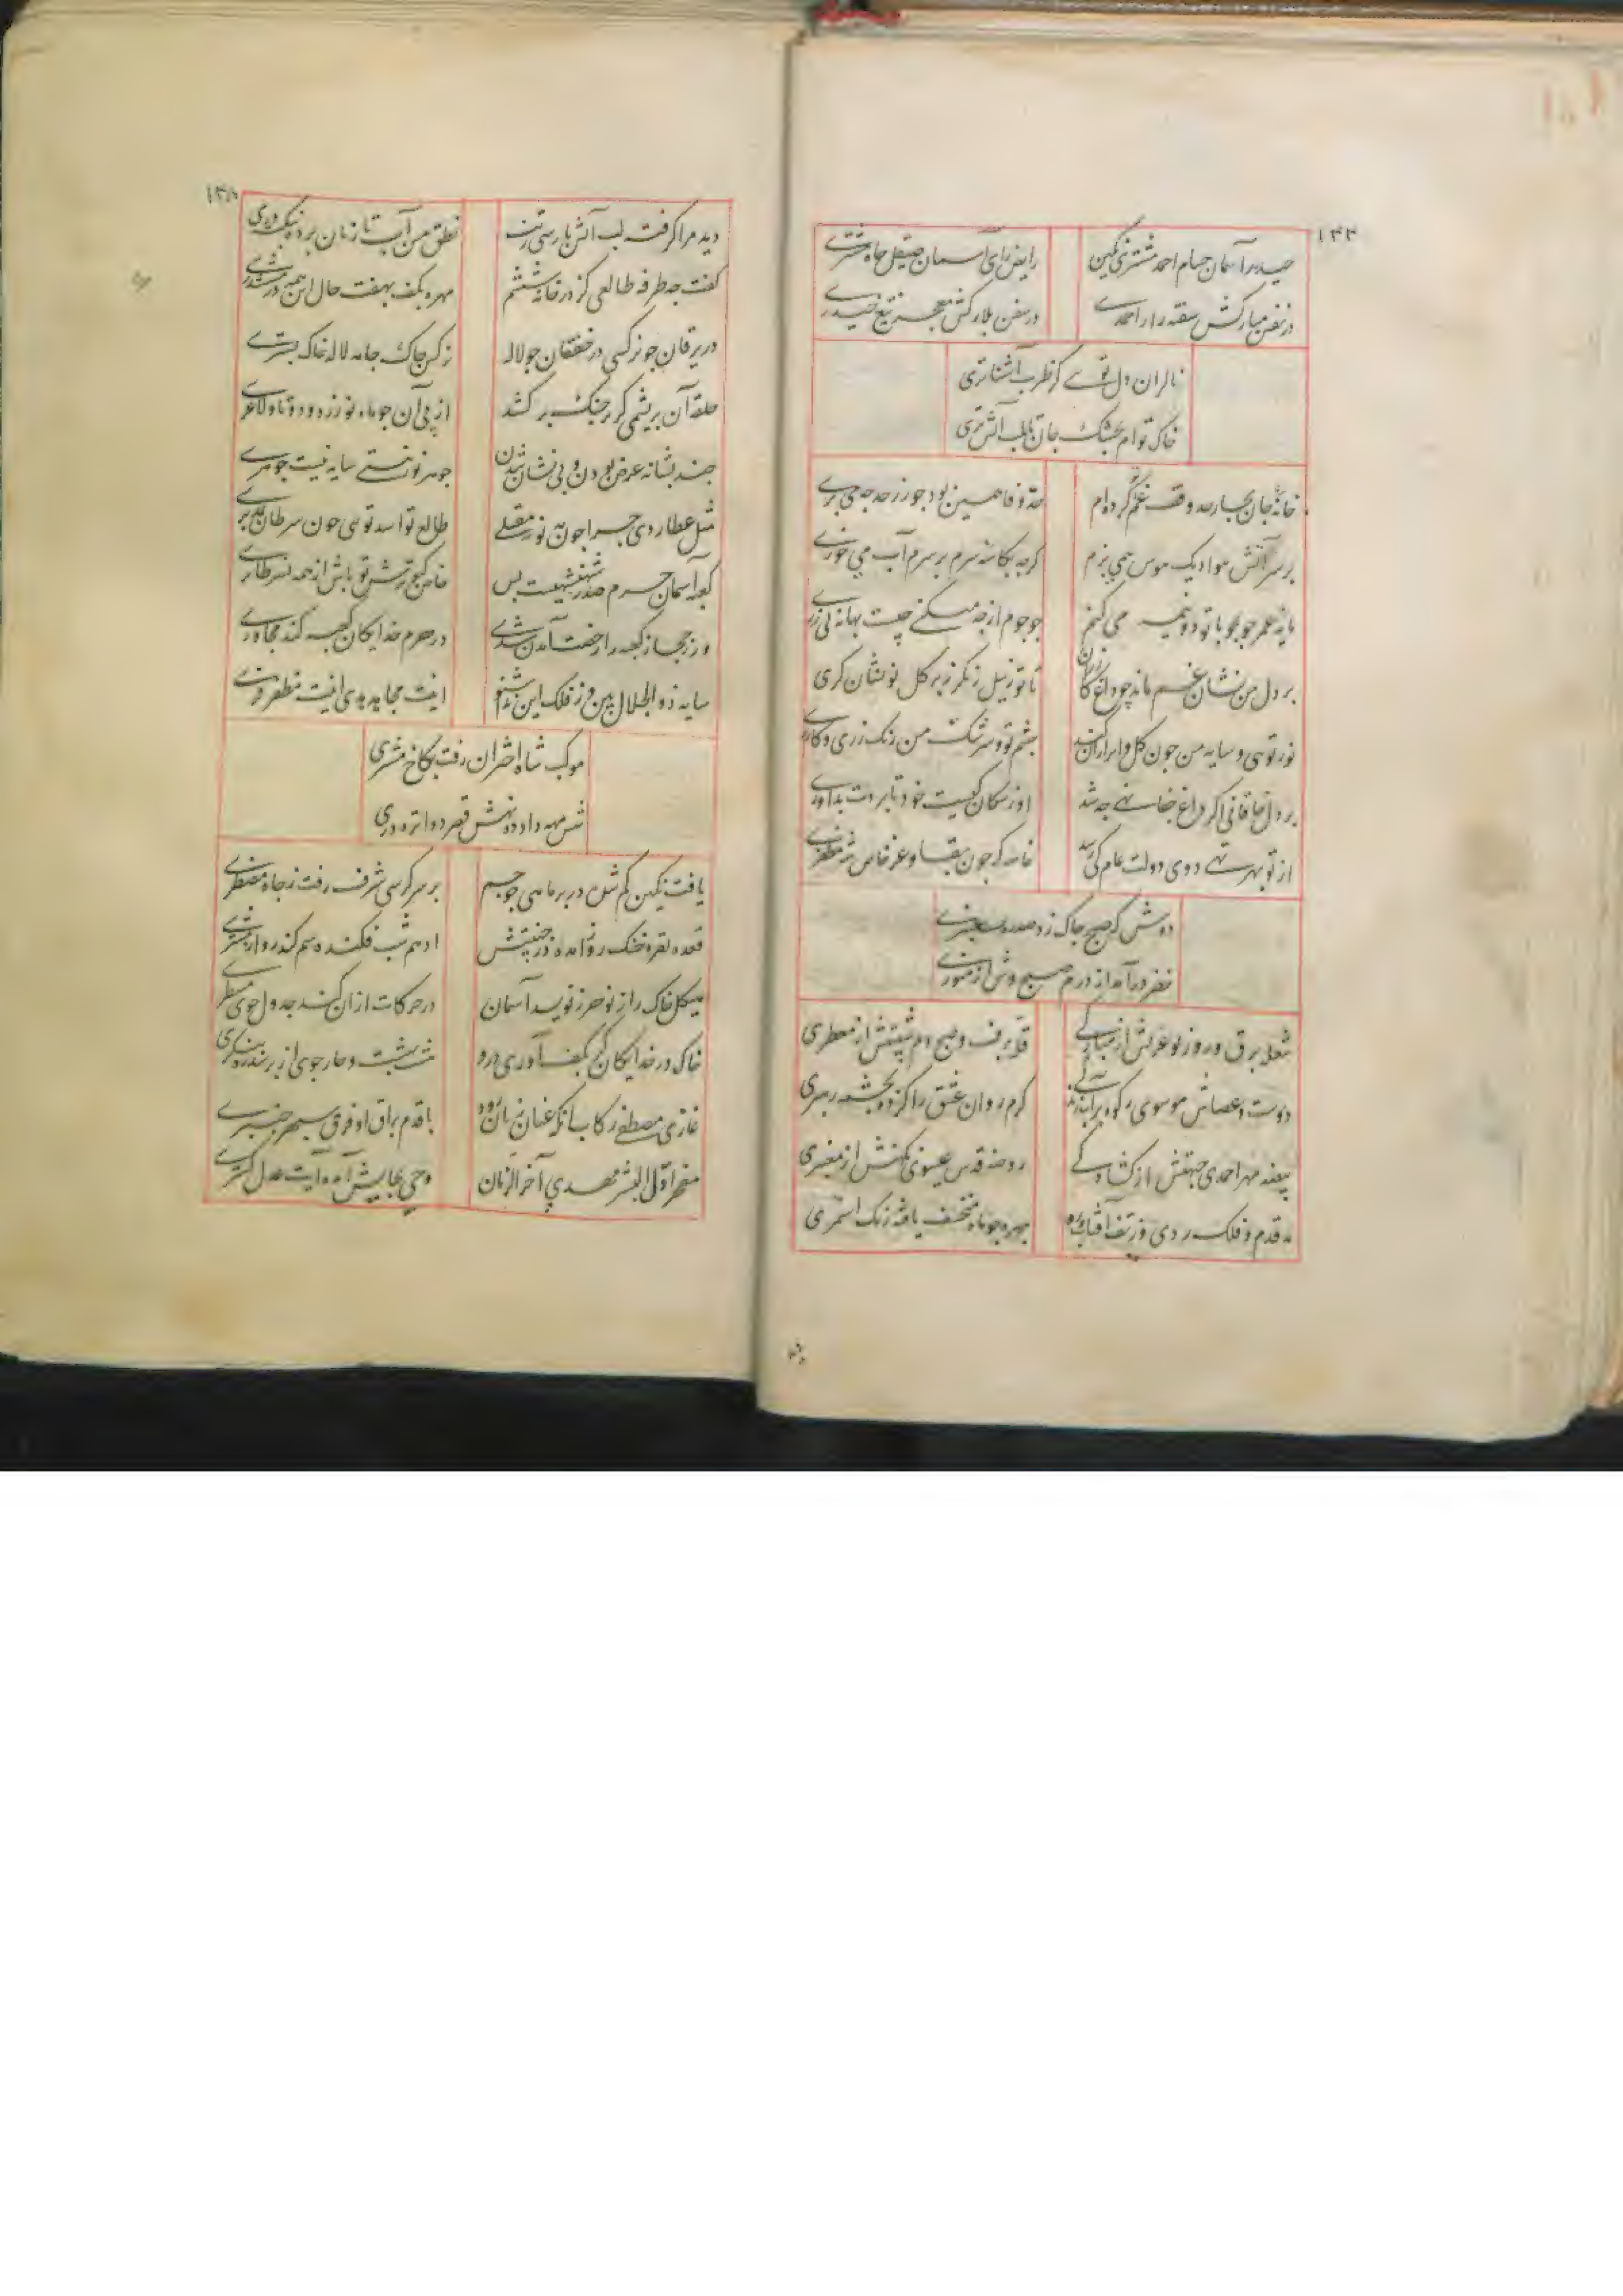 ۱۳۳
حیدر آسمان حسام احمد مشتری نکین
رایض رای آسمان صیقل جاه مشتری
در نفس مبارکش سفته راز احمدی
در سفن بلارکش معجز تیغ حیدری
نالران دل توی کز طرب آشناتری
خاک توام بخشک جان تا بلب آتش تری
خانه جان بچار حد وقف غم تو کرده ام
حد وفا همین بود جور ز حد چه می بری
بر سر آتش هوا دیک هوس همی پزم
کرچه بکاسه سرم بر سرم آب می خوری
مایه عمر جو بجو با تو دو نیمه می کنم
جو جوم از چه میکنی چیست بهانه بی زری
بر دل من نشان غم ماند چو داغ کازران
تا تو ز نیل زنکرز بر کل نو نشان کری
نور توئی و سایه من جون کل و ابر از آن کند
چشم تو و سرشک من رنک زری و کازری
بر دل خاقانی اکر داغ جفا نهی چه شد
او ز سکان کیست خود تا بردت بداوری
از تو بهر تهی دوی دولت عام کی رسد
خاصه که جون بقا و عز خاص شه مظفری
دوش که صبح چاک زد صدره عنبری
خضر درآمد از درم صبح وش از منوری
شعله برق و روز نو غرتش از مبارکی
قله برف و صبح دم شیبتش از معطری
دوست و عصاش موسوی رکوه پر آب زندکی
کرم روان عشق را کرده بچشمه رهبری
بیضه مهر احمدی جبهتش از کشادکی
روضه قدس عیسوی نکهتش از معنبری
مه قدم و فلک ردی وز تف آفتاب ره
چهره چو ماه منخسف یافته رنک اسمری
۱۳۸
دید مرا کرفته لب آتش پارسی ز تب
نطق من آب تازیان برده بنکته دری
کفت چه طرفه طالعی کز در خانه ششم
مهره بکف بهفت حال این همه در مششدری
در یرقان جو نرکسی در خفقان جو لاله
نرکس چاک جامه لاله خاک بستری
حلقه آن بریشمی کز بر جنک بر کشند
از پی آن جو ماه نو زرد و دوتا و لاغری
چند بشانه عرض بودن و بی نشان شدن
جوهر نو نئی سایه نیست جوهری
مثل عطاردی چرا جون مه نو نه مقبلی
طالع تو اسد توئی جون سرطان بمدبری
کعبه آسمان حرم صدر شهنشهیست بس
خاص کنج عرش تو باش از همه نسر طایری
ور ز حجاز کعبه را رخصت آمدن شدی
در حرم خدایکان کعبه کند مجاوری
سایه ذوالجلال بین وز فلک این ندا شنو
اینت مجاهد هدی اینت مظفر فری
موکب شاه اختران رفت بکاخ مشتری
شش مهه داده ده نهش قصر دوازده دری
یافت نکین کم شده در بر ماهی جو جم
بر سر کرسی شرف رفت ز جاه مضطری
قعده نقره خنک روز آمده در جنیبتش
ادهم شب فکنده سم کندرو از مشتری
هیکل خاک را ز نو حرز نویسد آسمان
در حرکات از آن کند جدول جوی مسطری
خاک در خدایکان کر بکف آوری درو
هشت بهشت و چار جوی از بر سدره بنکری
غازی مصطفی رکاب آنکه عنان زنان رود
با قدم براق او فرق سپهر چنبری
مفخر اول البشر مهدی آخر الزمان
وحی بجایش آمده آیت عدل کستری